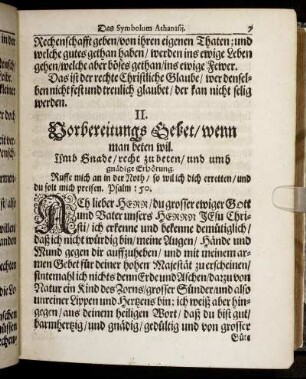 Das Symbolum Athanasij. 7
Rechenschafft geben/ von ihren eigenen Thaten; und
welche gutes gethan haben/ werden ins ewige Leben
gehen/ welche aber böses gethan/ ins ewige Fewer.
Das ist der rechte Christliche Glaube/ wer densel-
ben nicht fest und treulich glaubet/ der kan nicht selig
werden.
II.
Vorbereitungs Gebet/ wenn
man beten wil.
Umb Gnade/ recht zu beten/ und umb
gnädige Erhörung.
Ruffe mich an in der Noth/ so wil ich dich erretten/ und
du solt mich preisen. Psalm: 50.
ACh lieber HERR/ du grosser ewiger Gott
und Vater unsers HERRN JEsu Chri-
sti/ ich erkenne und bekenne demütiglich/
daß ich nicht würdig bin/ meine Augen/ Hände und
Mund gegen dir auffzuheben/ und mit meinem ar-
men Gebet für deiner hohen Majestät zu erscheinen/
sintemahl ich nichts denn Erde und Aschen/ dazu von
Natur ein Kind des Zorns/ grosser Sünder/ und also
unreiner Lippen und Hertzens bin; ich weiß aber hin-
gegen/ aus deinem heiligen Wort/ daß du bist gut/
barmhertzig/ und gnädig/ gedültig und von grosser
Güte